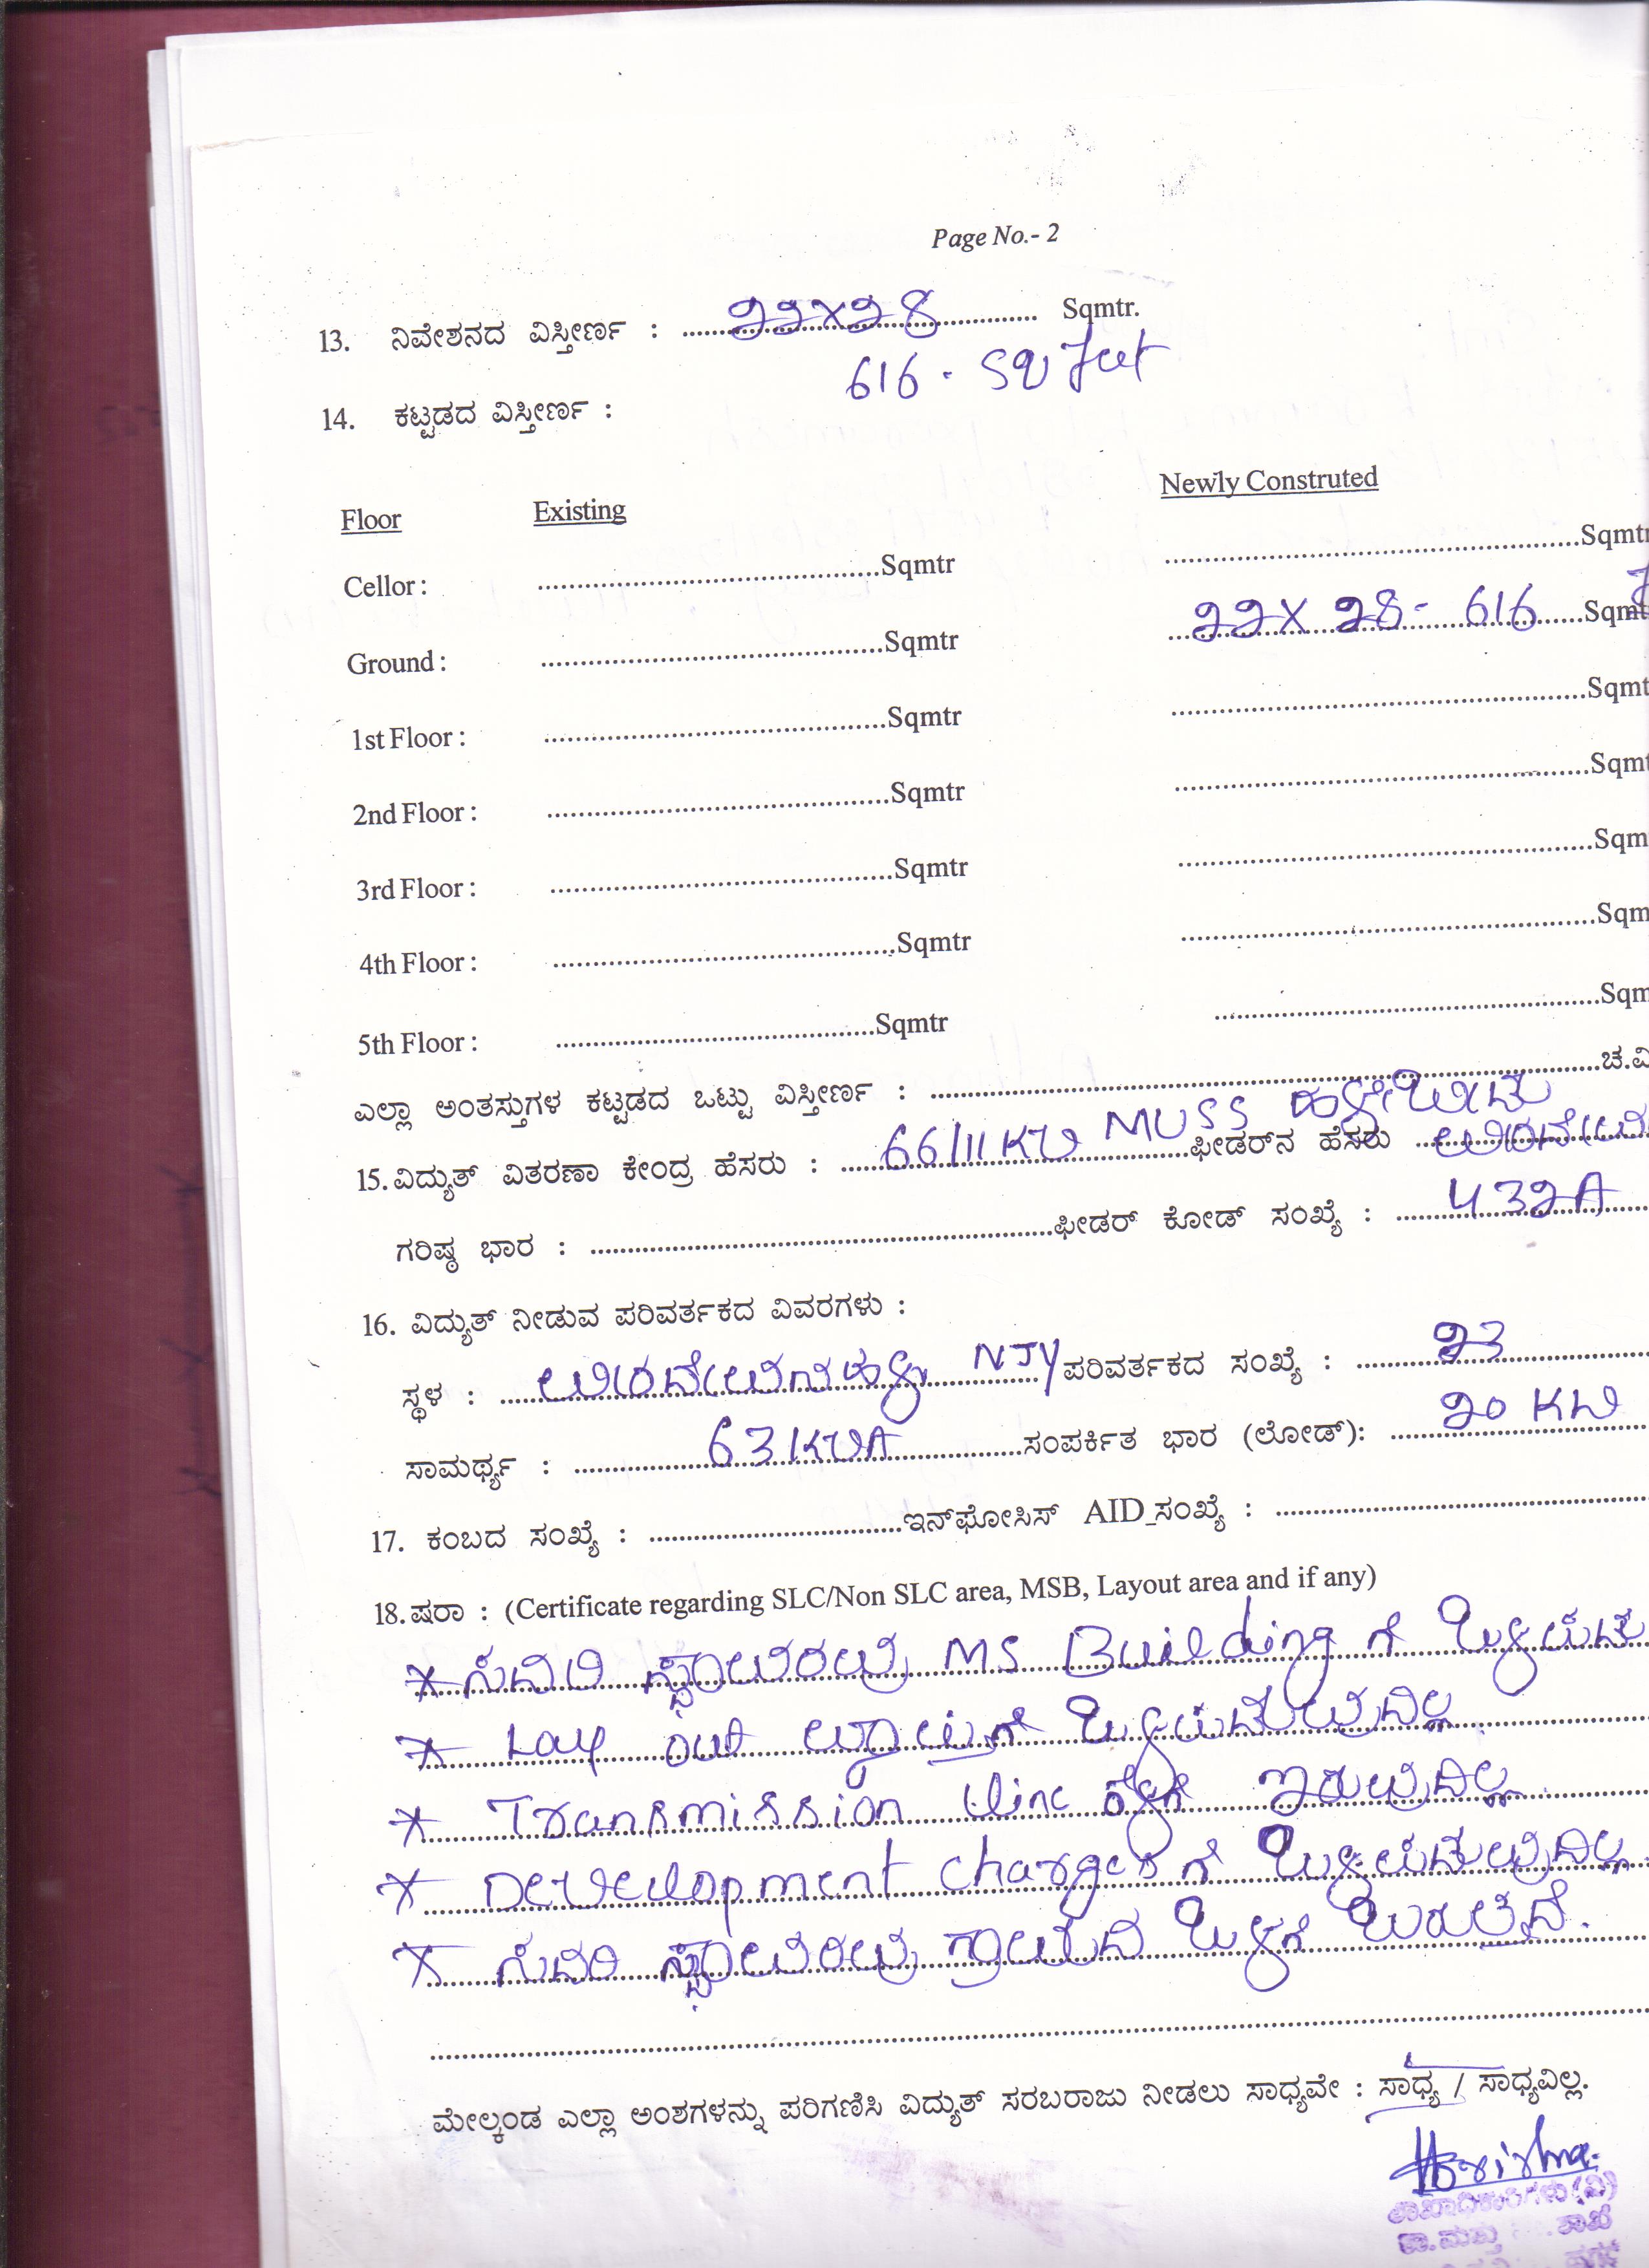 Page No.- 2
13. ನಿವೇಶನದ ವಿಸ್ತೀರ್ಣ : 22X28 Sqmtr.
616 - SQ feet
14. ಕಟ್ಟಡದ ವಿಸ್ತೀರ್ಣ :
Floor Existing Newly Construted
Cellor : Sqmtr Sqmtr
Ground : Sqmtr 22X 28- 616 Sqmt
1st Floor : Sqmtr Sqmt
2nd Floor : Sqmtr Sqmt
3rd Floor : Sqmtr Sqm
4th Floor : Sqmtr Sqm
5th Floor : Sqmtr Sqm
ಎಲ್ಲಾ ಅಂತಸ್ತುಗಳ ಕಟ್ಟಡದ ಒಟ್ಟು ವಿಸ್ತೀರ್ಣ : ಚ.ಮೀ
15. ವಿದ್ಯುತ್ ವಿತರಣಾ ಕೇಂದ್ರ ಹೆಸರು : 66/11 KV MUSS ಹಳೇಬೀಡು ಫೀಡರ್‌ನ ಹೆಸರು
ಗರಿಷ್ಠ ಭಾರ : ಫೀಡರ್ ಕೋಡ್ ಸಂಖ್ಯೆ : 432A
16. ವಿದ್ಯುತ್ ನೀಡುವ ಪರಿವರ್ತಕದ ವಿವರಗಳು :
ಸ್ಥಳ : NJY ಪರಿವರ್ತಕದ ಸಂಖ್ಯೆ : 23
ಸಾಮರ್ಥ್ಯ : 63 KVA ಸಂಪರ್ಕಿತ ಭಾರ (ಲೋಡ್): 20 KW
17. ಕಂಬದ ಸಂಖ್ಯೆ : ಇನ್‌ಫೋಸಿಸ್ AID_ಸಂಖ್ಯೆ :
18. ಷರಾ : (Certificate regarding SLC/Non SLC area, MSB, Layout area and if any)
* ಸದರಿ ಸ್ಥಾವರವು MS Building ಗೆ ಒಳಪಡು
* Lay out ವ್ಯಾಪ್ತಿಗೆ ಒಳಪಡುವುದಿಲ್ಲ
* Transmission line ಕೆಳಗೆ ಇರುವುದಿಲ್ಲ
* Development charges ಗೆ ಒಳಪಡುವುದಿಲ್ಲ
* ಸದರಿ ಸ್ಥಾವರವು ಗ್ರಾಮದ ಒಳಗೆ ಬರುತ್ತದೆ.
ಮೇಲ್ಕಂಡ ಎಲ್ಲಾ ಅಂಶಗಳನ್ನು ಪರಿಗಣಿಸಿ ವಿದ್ಯುತ್ ಸರಬರಾಜು ನೀಡಲು ಸಾಧ್ಯವೇ : ಸಾಧ್ಯ / ಸಾಧ್ಯವಿಲ್ಲ.
ಶಾಖಾಧಿಕಾರಿಗಳು (ವಿ)
ಶಾಖೆ